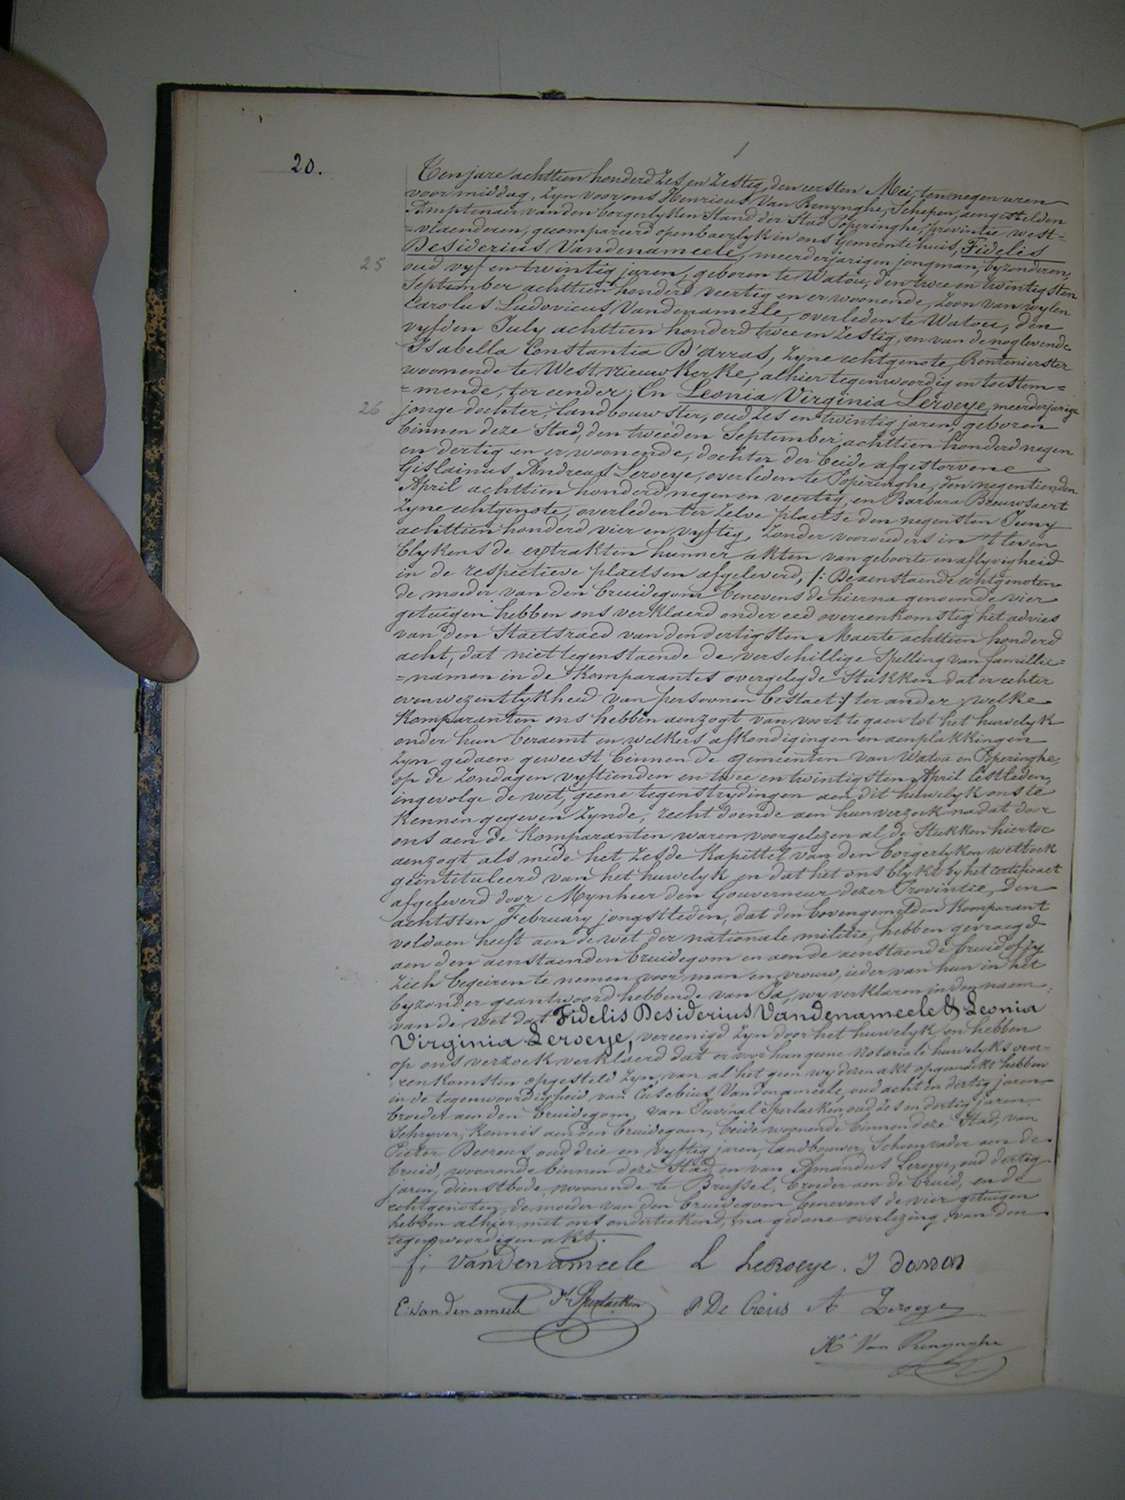 20.
Ten jare achttien honderd zes en zestig, den eersten Mei, ten negen uren
voormiddag, zyn voor ons Henricus Van Renynghe, Schepen, aengestelden
Amptenaer van den borgerlyken Stand der Stad Poperinghe, provintie west-
=vlaenderen, gecompareerd openbaerlyk in ons Gemeentehuis, Fidelis
Desiderius Vandenameele, meerderjarigen jongman, byzonderen,
25
oud vyf en twintig jaren, geboren te Watou, den twee en twintigsten
September achttien honderd veertig en er woonende, Zoon van wylen
Carolus Ludovicus Vandenameele, overleden te Watou, den
vyfden July achttien honderd twee en zestig, en van de noglevende
Isabella Constantia D'arras, Zyne echtgenote, Rentenierster
woonende te Westnieuwkerke, alhier tegenwoordig en toestem-
=mende, ter eender; En Leonia Virginia Leroeye, meerderjarige
26
jonge dochter, Landbouwster, oud zes en twintig jaren, geboren
binnen deze Stad, den tweeden September achttien honderd negen
en dertig en er woonende, dochter der beide afgestorvene
Gislainus Andreas Leroeye, overleden te Poperinghe, den negentienden
April achttien honderd negen en veertig, en Barbara Brouwaert
Zyne echtgenote, overleden ter zelve plaetse den negensten Juny
achttien honderd vier en vyftig, Zonder voorouders in 't leven
blykens de extrakten hunner akten van geboorte en aflyvigheid
in de respectieve plaetsen afgeleverd, /: De aenstaende echtgenoten
de moeder van den bruidegom benevens de hierna genoemde vier
getuigen hebben ons verklaerd onder eed overeenkomstig het advies
van den Staetsraed van den dertigsten Maerte achttien honderd
acht, dat niettegenstaende de verschillige Spelling van famillie=
=namen in de Komparantes overgelegde Stukken dat er echter
evenwezentlykheid van persoonen bestaet :/ ter ander, welke
Komparanten ons hebben aenzogt van voort te gaen tot het huwelyk
onder hun beraemt en welkers afkondigingen en aenplakkingen
Zyn gedaen geweest binnen de gemeenten van Watou en Poperinghe,
op de Zondagen vyftienden en twee en twintigsten April lestleden,
ingevolge de wet, geene tegenstrydingen aen dit huwelyk ons te
kennen gegeven zynde, recht doende aen hun verzoek nadat door
ons aen de Komparanten waren voorgelezen al de Stukken hiertoe
aenzogt als mede het zesde Kapittel van den borgerlyken wetboek
geintituleerd van het huwelyk en dat het ons blykt by het certificaet
afgeleverd door Mynheer den Gouverneur dezer Provintie, den
achtsten February jongstleden, dat den bovengemelden Komparant
voldaen heeft aen de wet der nationale militie, hebben gevraegd
aen den aenstaenden bruidegom en aen de aenstaende bruid of zy
zich begeiren te nemen voor man en vrouw, ieder van hun in het
byzonder geantwoord hebbende van Ja, wy verklaren in den naem
van de wet dat Fidelis Desiderius Vandenameele & Leonia
Virginia Leroeye, vereenigd zyn door het huwelyk en hebben
op ons verzoek verklaerd dat er voor hun geene notariale huwelyks over-
=eenkomsten opgesteld zyn, van al het geen wy dezen akt opgemaekt hebben
in de tegenwoordigheid van Eusebius Vandenameele, oud acht en dertig jaren
broeder aen den bruidegom, van Juvinal Sperlaeken, oud zes en dertig jaren
Schryver, Kennis aen den bruidegom, beide woonende binnen deze Stad, van
Pieter Decreus, oud drie en vyftig jaren, landbouwer, Schoonvader aen de
bruid, woonende binnen deze Stad, en van Amandus Leroeye, oud dertig
jaren, dienstbode, woonende te Brussel, broeder aen de bruid, en de
echtgenoten, de moeder van den bruidegom benevens de vier getuigen
hebben alhier met ons onderteekend, na gedane overlezing van den
tegenwoordigen akt.
f. Vandenameele L Leroeye. I darras
E. Vandenameele Jl Sperlaeken P De Creus A Leroeye
H. Van Renynghe